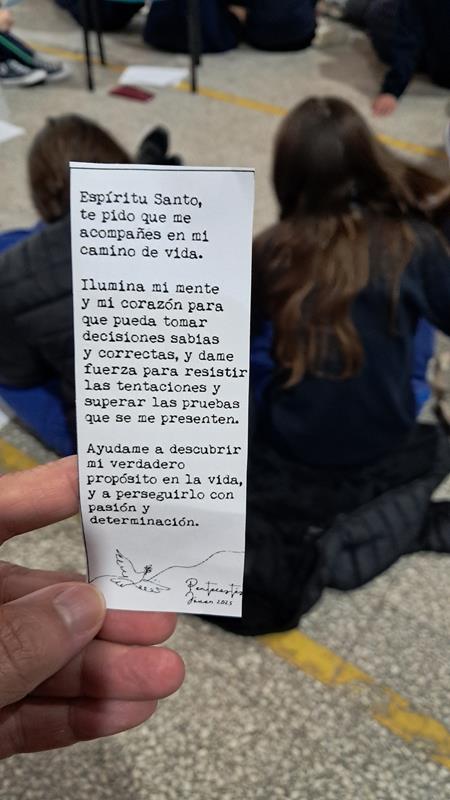 Espíritu Santo,
te pido que me
acompañes en mi
camino de vida.
Ilumina mi mente
y mi corazón para
que pueda tomar
decisiones sabias
y correctas, y dame
fuerza para resistir
las tentaciones y
superar las pruebas
que se me presenten.
Ayudame a descubrir
mi verdadero
propósito en la vida,
y a perseguirlo con
pasión y
determinación.
Pentecostés
Joven 2025